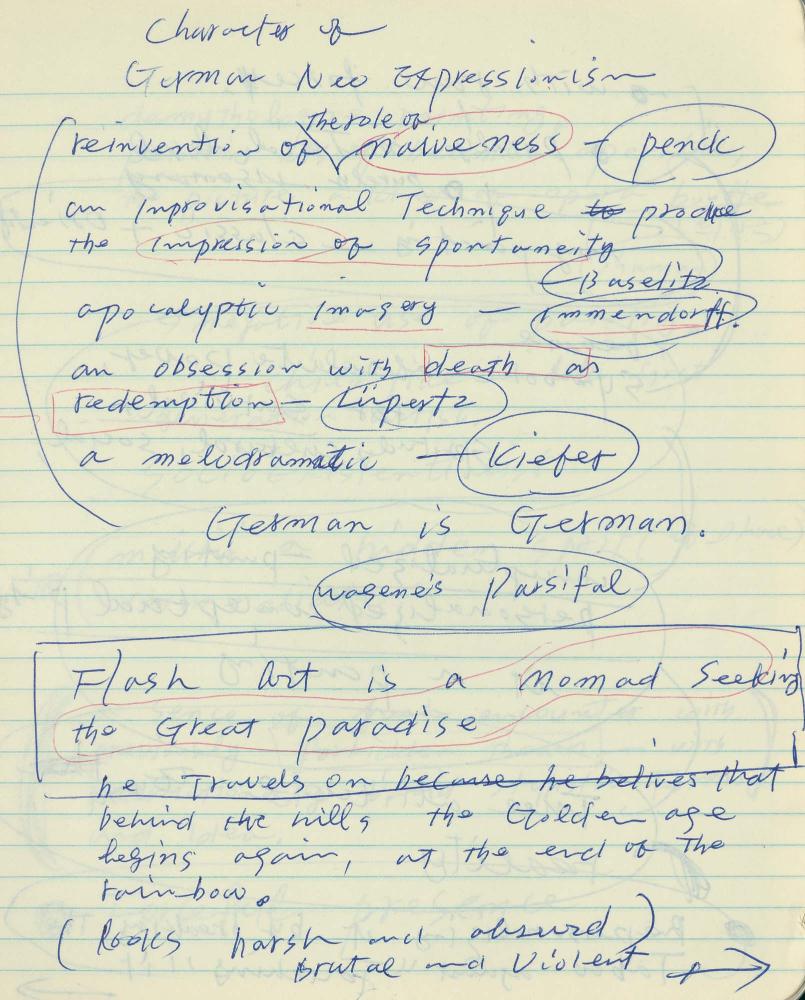 Character of
German Neo Expressionism
The role of
reinvention of naiveness — penck
an Inprovisational Technique to produce
the impression of spontaneity
— Baselitz
apocalyptic imagery — immendorff.
an obsession with death as
redemption — Lüpertz
a melodramatic — Kiefer
German is German.
wagene's Parsifal
Flash Art is a nomad Seeking
the Great paradise
he Travels on because he belives that
behind the hills the Golden age
begins again, at the end of The
rainbow.
(Looks harsh and absurd)
Brutal and Violent →